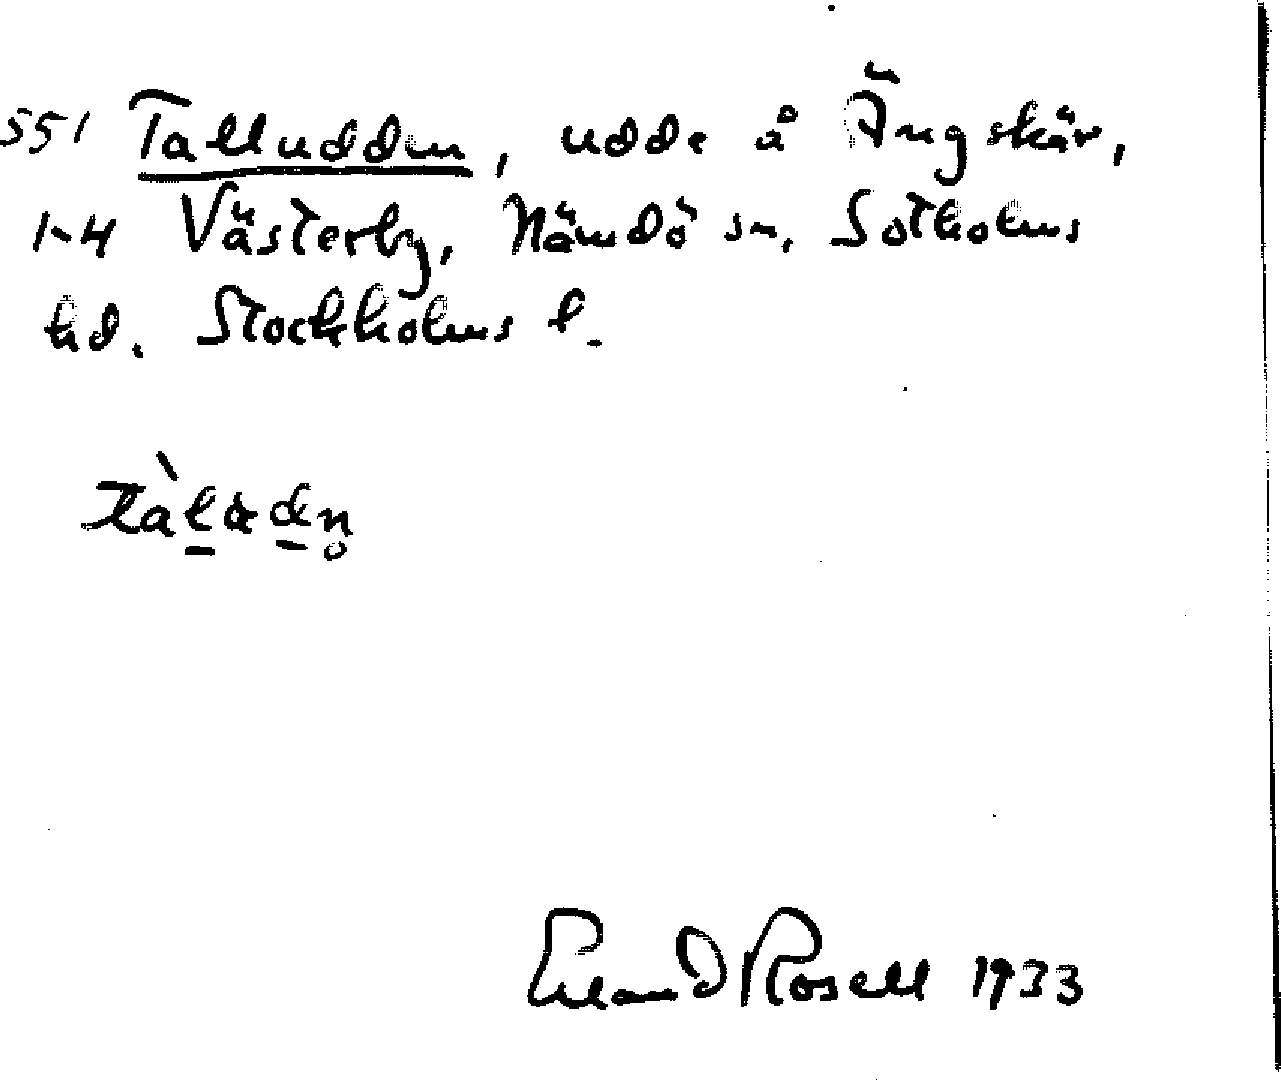 551 Talludden, udde å Ängskär,
1-4 Västerby, Nämdö sn, Sotholms
hd. Stockholms l.
Erland Rosell 1933